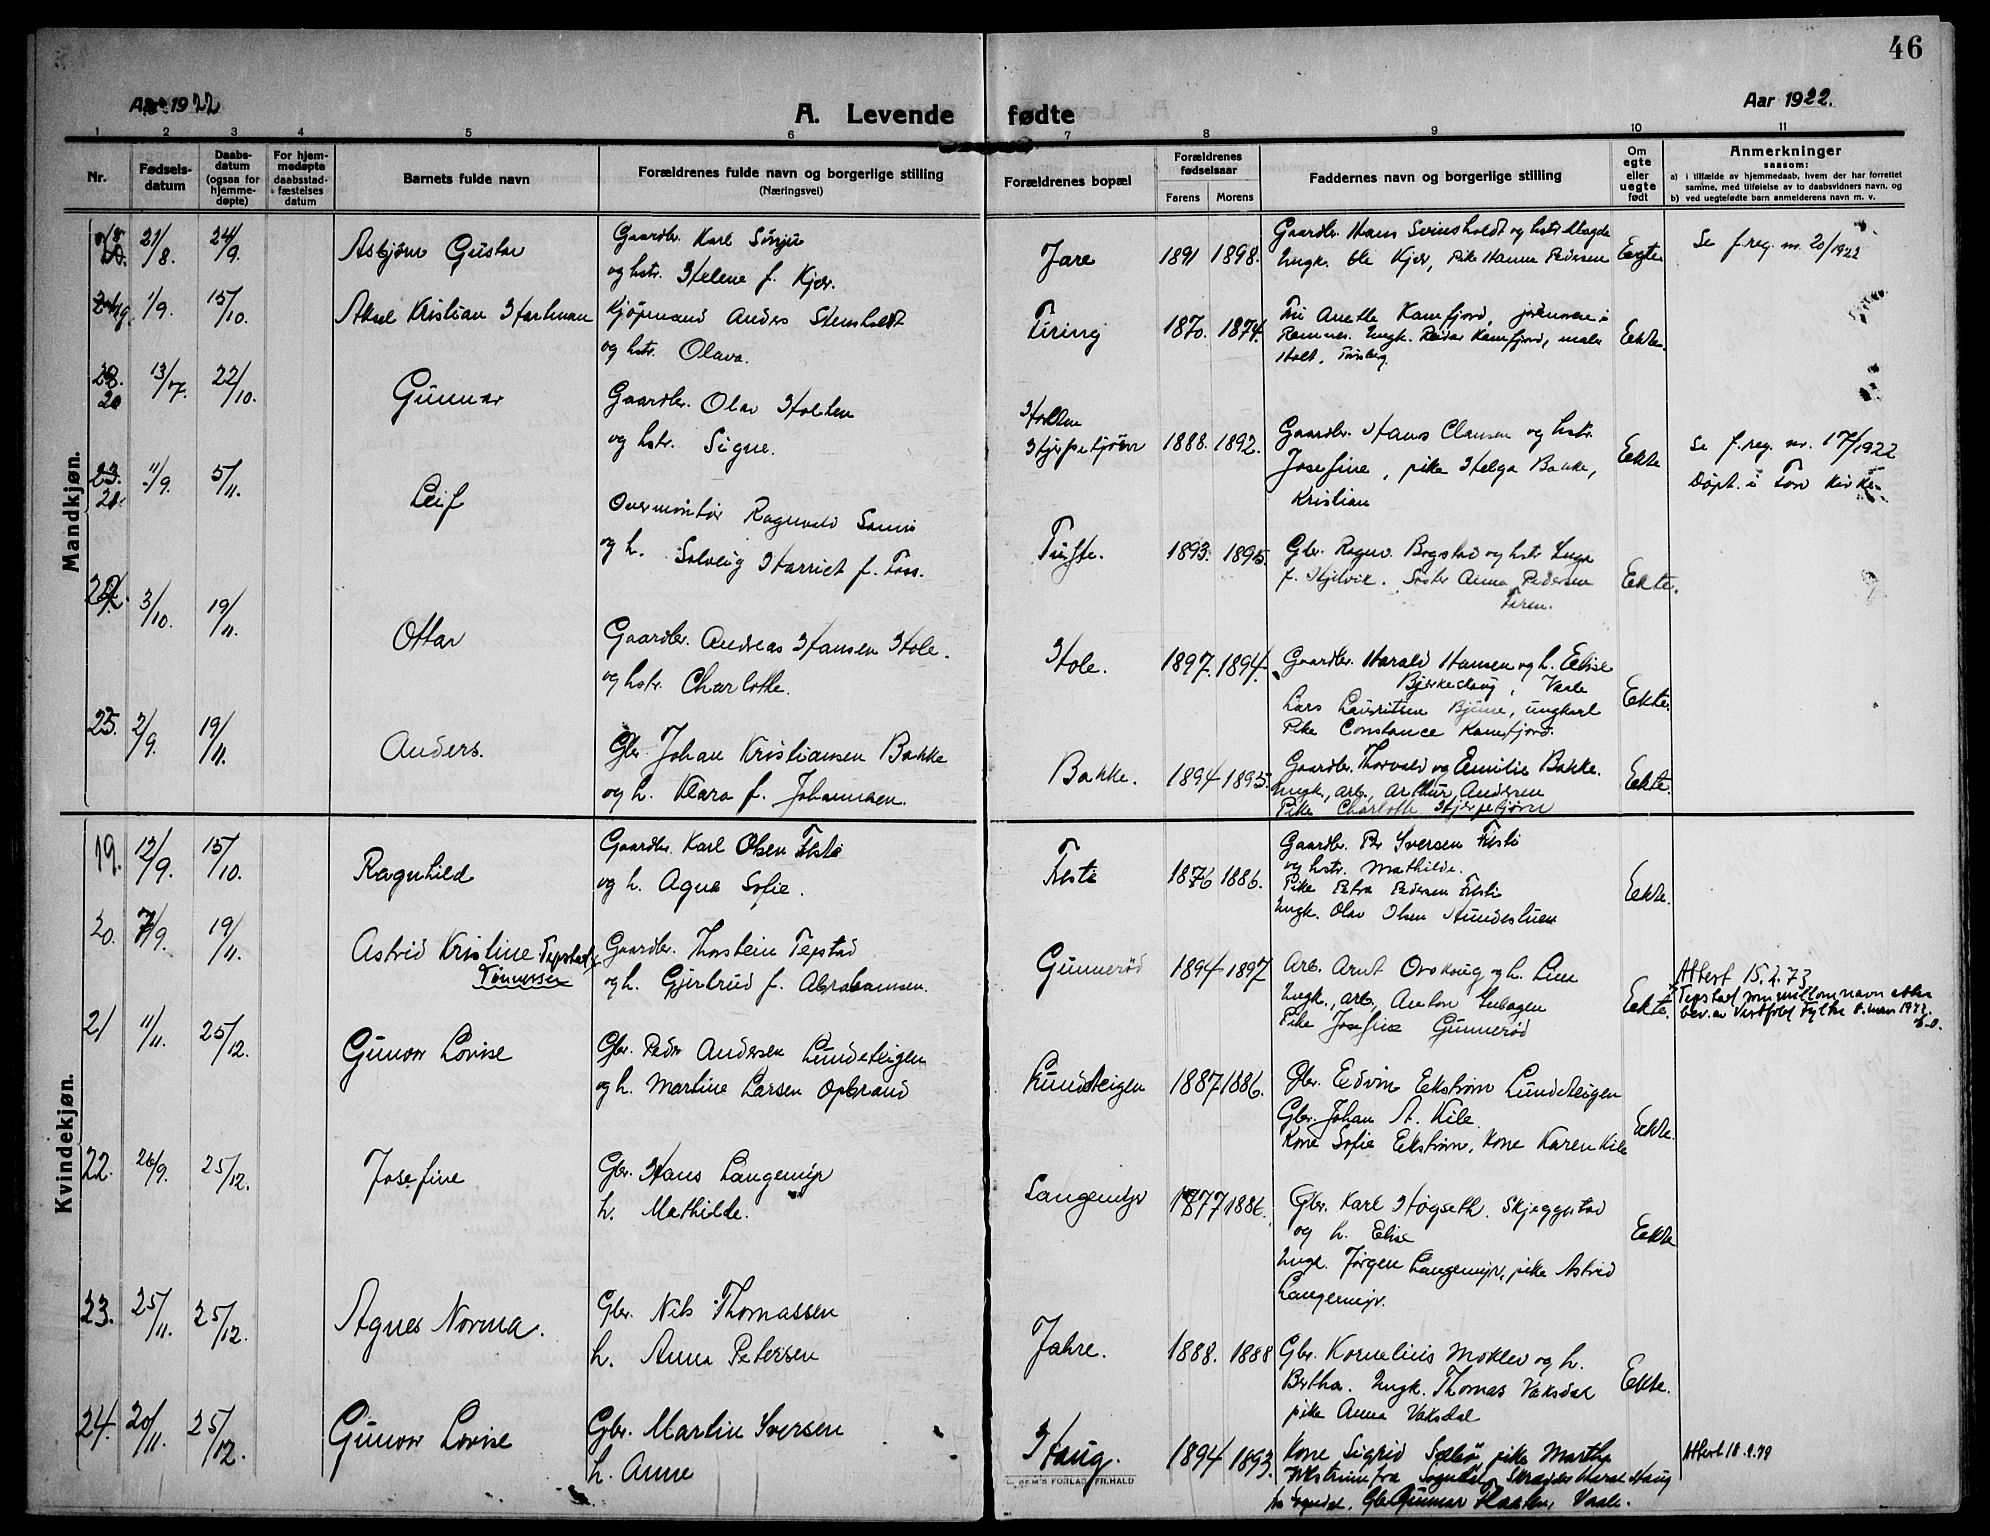 46
Aar 1922
A. Levende fødte
Aar 1922.
1 2 3 4 5 6 7 8 9 10 11
Nr.
Fødsels-datum
Daabs-datum (ogsaa for hjemme-døpte)
For hjem-medøpte daabsstad-fæstelses datum
Barnets fulde navn
Forældrenes fulde navn og borgerlige stilling
(Næringsvei)
Forældrenes bopæl
Forældrenes fødselsaar
Farens Morens
Faddernes navn og borgerlige stilling
Om egte eller uegte født
Anmerkninger
saasom:
a) i tilfælde av hjemmedaab, hvem der har forrettet
samme, med tilføielse av to daabsvidners navn, og
b) ved uegtefødte barn anmelderens navn m. v.
Mandkjøn.
21/8. 24/9. Asbjørn Gustav
Gaardbr. Karl Sønju
og hstr. Helene f. Kjær.
Jare 1891 1898.
Gaardbr. Hans Svinsholdt og hstr. Magda
Ungk. Ole Kjær, Pike Hanna Pedersen
Egte.
Se f.reg. nr. 20/1922
1/9. 15/10. Aksel Kristian Hartman
Kjøpmand Anders Stensholdt
og hstr. Olava.
Firing 1870. 1874.
Fru Anette Kamfjord, jordmor i
Ramnes. Ungk. Reidar Kamfjord, maler
Holt, Tønsberg.
Ekte.
20 13/7. 22/10. Gunnar
Gaardbr. Olav Holten
og hstr. Signe.
Holten
Hjerpetjörn 1888. 1892.
Gaardbr. Hans Clausen og hstr.
Josefine, pike Helga Bakke,
Kristian
Ekte
Se f.reg. nr. 17/1922
Döpt i Fon Kirke.
23. 21. 11/9. 5/11. Leif
Overmontør Ragnvald
og h. Solveig Harriet f. Foss.
Tufte. 1893. 1895.
Gbr. Ragnv. Bogstad og hstr. Inga
f. Hjelvik. Søster Anna Pedersen
Ekte.
22. 3/10. 19/11. Ottar
Gaardbr. Andreas Hansen Hole.
og hstr. Charlotte.
Hole. 1897. 1894.
Gaardbr. Harald Hansen og h. Elise
Bjerkeskaug, Vaale
Lars Lauritsen Bjune, ungkarl
Pike Constance Kamfjord.
Ekte.
23. 2/9. 19/11. Anders.
Gbr. Johan Kristiansen Bakke
og h. Klara f. Johannsen.
Bakke. 1894 1895.
Gaardbr. Thorvald og Emilie Bakke.
Ungk., arb., Arthur Andersen
Pike Charlotte Hjerpetjørn
Ekte.
Kvindekjøn.
19. 12/9. 15/10. Ragnhild
Gaardbr. Karl Olsen Freste
og h. Agna Sofie.
Freste 1876 1886.
Gaardbr. Per Iversen Freste
og hstr. Mathilde.
Pike Petra Pedersen Freste
Ungk. Olav Olsen Hundestuen
Ekte.
20. 7/9. 19/11. Astrid Kristine Tepstad x
Tønnersen
Gaardbr. Thorstein Tepstad
og h. Gjertrud f. Abrahamsen.
Gunnerød 1894 1897
Arb. Arnt Orskoug og h. Lina
Ungk., arb., Anton Enhagen
Pike Josefine Gunnerød
Ekte.
Attest 15.2.73
x Tepstad som mellomnavn
bev. av Vestfold Fylke 8. mars 1973.
21 11/11. 25/12. Gunvor Lovise
Gbr. Peder Andersen Lundeteigen
og h. Martine Larsen Opbrand
Lundeteigen 1887 1886.
Gbr. Edvin Ekstrøm Lundeteigen
Gbr. Johan A. Kile.
Kone Sofie Ekstrøm, Kone Karen Kile
Ekte.
22. 26/9. 25/12. Josefine
Gbr. Hans Langemyr
h. Mathilde.
Langemyr 1877 1886.
Gbr. Karl Høgseth. Skjeggestad
og h. Elise
Ungk. Jörgen Langemyr, pike Astrid
Langemyr.
Ekte
23. 25/11. 25/12. Agnes Norma.
Gbr. Nils Thomassen
h. Anna Petersen
Jahre. 1888. 1888
Gbr. Kornelius Moklev og h.
Bertha. Ungk. Thomas Vaksdal
pike Anna Vaksdal
Ekte.
24. 20/11. 25/12. Gunvor Lovise
Gbr. Martin Iversen
h. Anne
Haug. 1894 1893.
Kone Sigrid Sælid, pike Martha
fra Sogndal, Haug
fra Sogndal. Gbr. Gunnar Haaken, Vaale.
Attest 18.2.79
FORLAG, FR.HALD